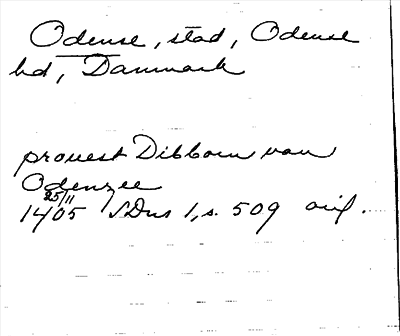 Odense, stad, Odense
hd, Danmark
prouest Dibborn van
Odenzee
25/11
1405 SDns 1, s. 509 avif.